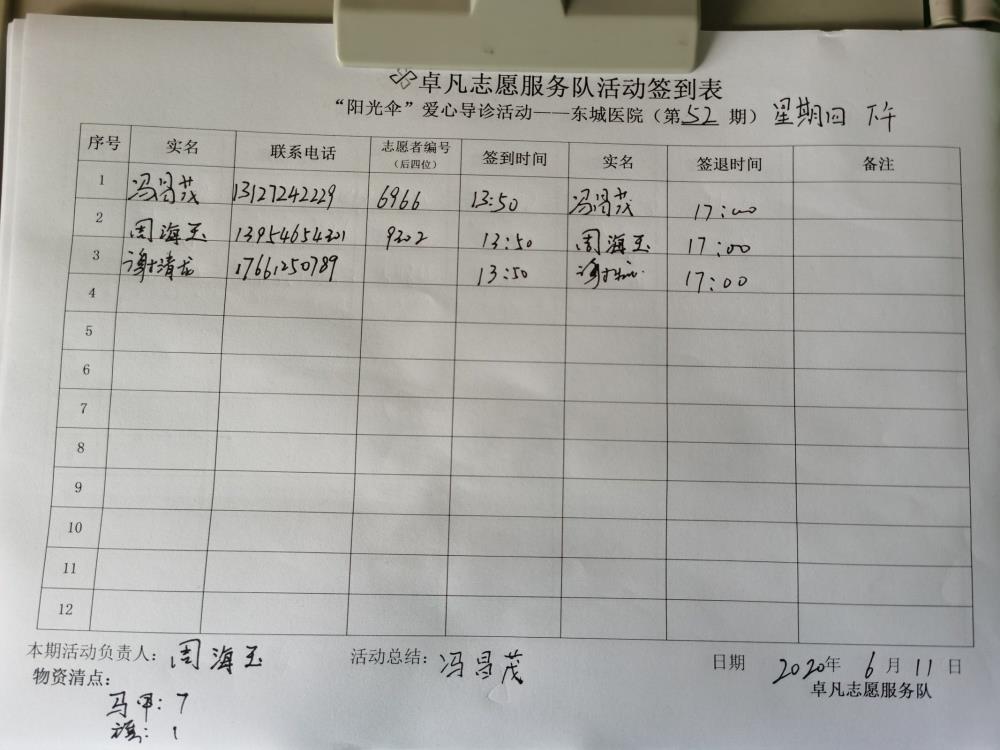 卓凡志愿服务队活动签到表
“阳光伞”爱心导诊活动——东城医院（第52期）星期四 下午
序号 实名 联系电话 志愿者编号（后四位） 签到时间 实名 签退时间 备注
1 冯昌茂 13127242229 6966 13:50 冯昌茂 17:00
2 周海玉 13954654301 9202 13:50 周海玉 17:00
3 谢清龙 17661250789 13:50 17:00
4
5
6
7
8
9
10
11
12
本期活动负责人：周海玉 活动总结：冯昌茂 日期 2020年6月11日
物资清点： 卓凡志愿服务队
马甲：7
旗：1